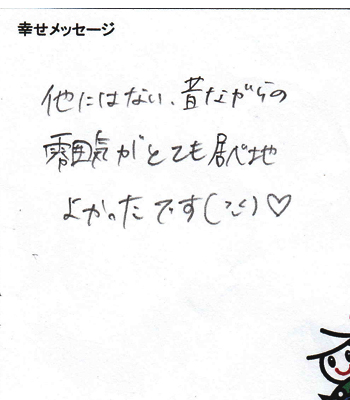 幸せメッセージ
他にはない、昔ながらの
雰囲気がとても居べ地
よかったです(^^)♡